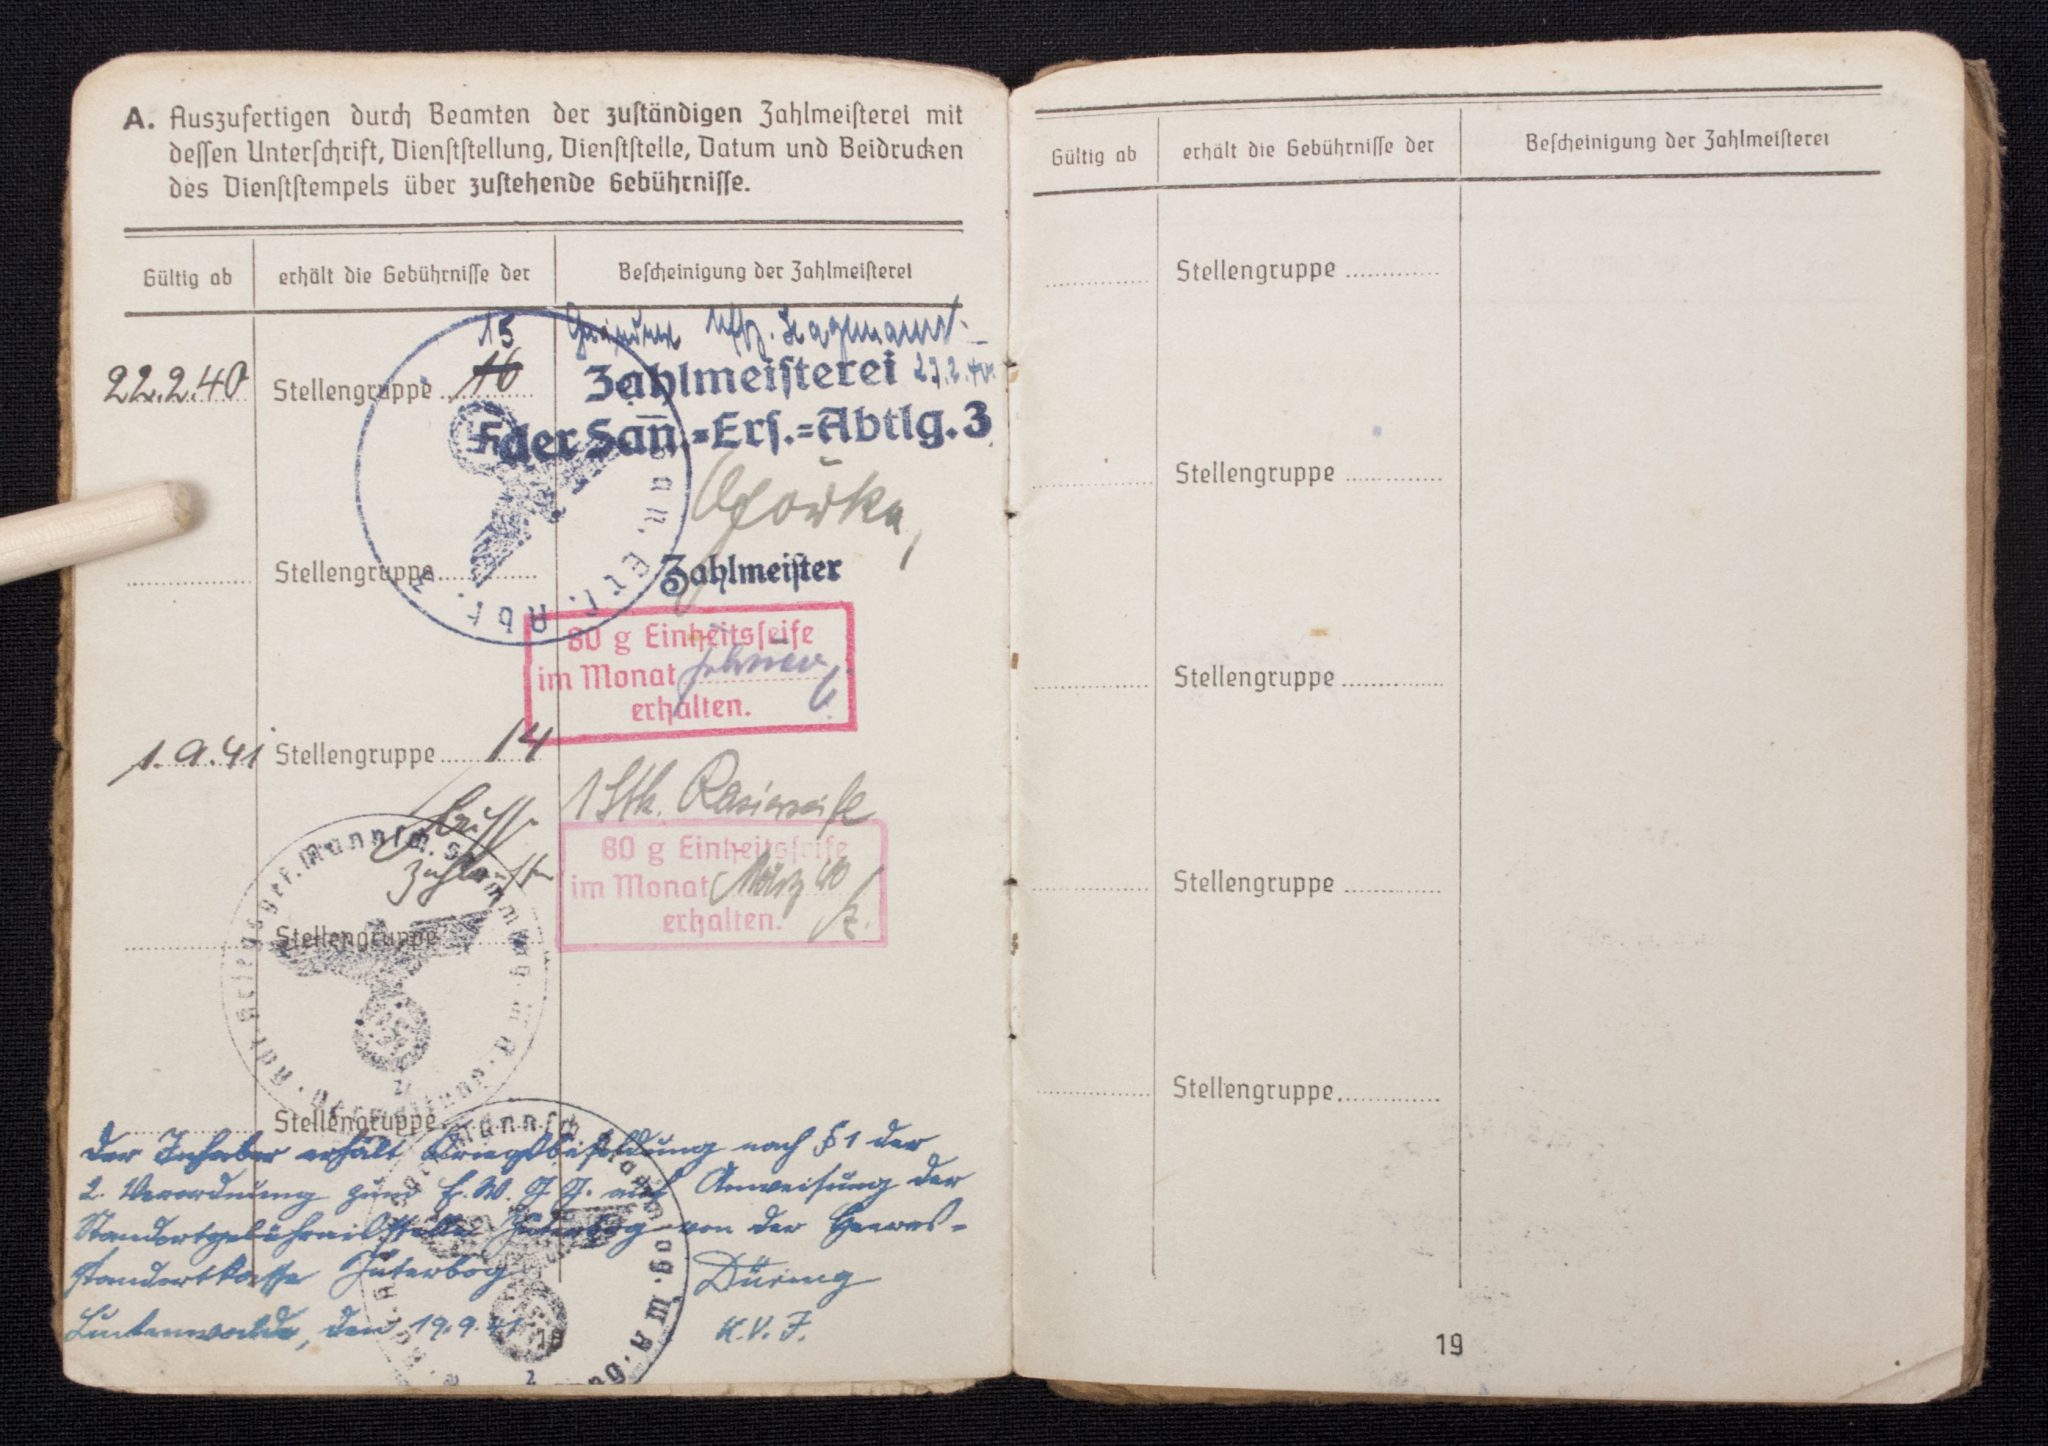 A. Auszufertigen durch Beamten der zuständigen Zahlmeisterei mit
dessen Unterschrift, Dienststellung, Dienststelle, Datum und Beidrucken
des Dienststempels über zustehende Gebührnisse.
Gültig ab erhält die Gebührnisse der Bescheinigung der Zahlmeisterei
15
22.2.40 Stellengruppe 16
Zahlmeisterei
der San.=Ers.=Abtlg. 3
Stellengruppe
Zahlmeister
80 g Einheitsseife
im Monat
erhalten.
1.9.41 Stellengruppe 14
1 Stk. Rasierseife
80 g Einheitsseife
im Monat März 40
erhalten.
Stellengruppe
Stellengruppe
Der Inhaber erhält Kriegsbesoldung nach § 1 der
2. Verordnung zum E.W.F.G. auf Anweisung der
Standortgebührnisstelle Jüterbog von der Heeres-
standortkasse Jüterbog
Düring
Luckenwalde, den 19.9.41
K.V.I.
Gültig ab erhält die Gebührnisse der Bescheinigung der Zahlmeisterei
Stellengruppe
Stellengruppe
Stellengruppe
Stellengruppe
Stellengruppe
19